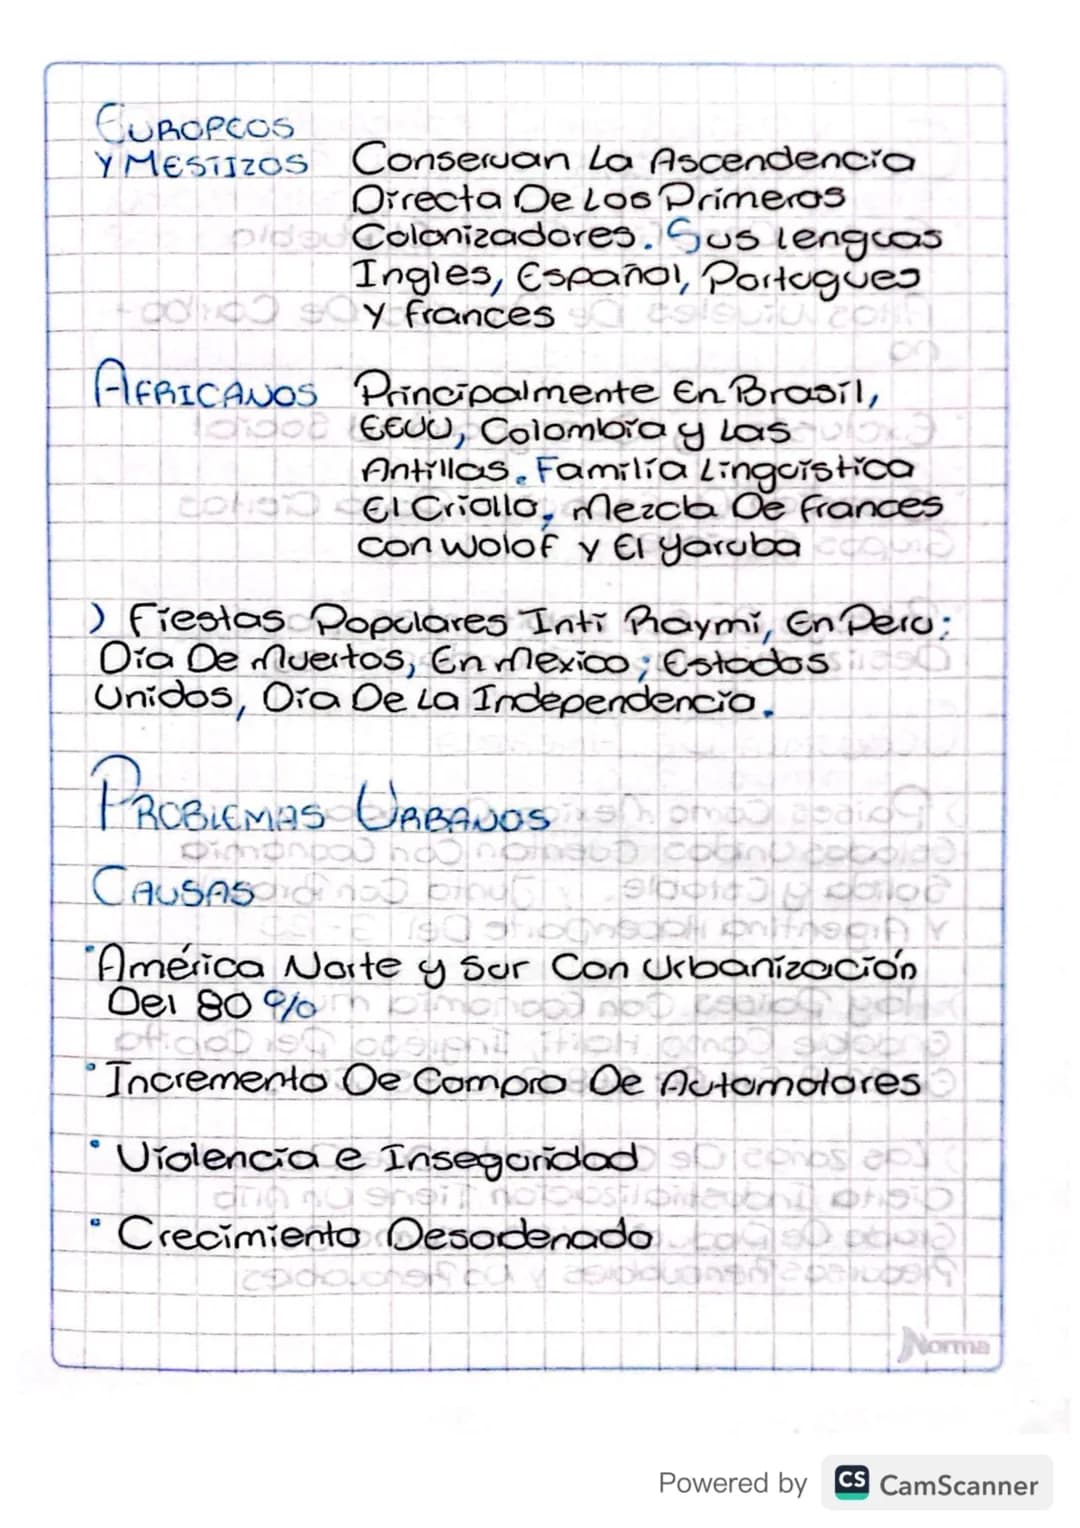 EUROPEOS
Y MESTIZOS Conservan La Ascendencia
Directa De Los Primeros
Colonizadores. Sus lenguas
Ingles, Español, Portugues
Y frances
AFRICANOS Principalmente En Brasil,
EEUU, Colombia y Las
Antillas. Familia Linguistica
El Criollo, Mezcla De frances
con Wolof y El Yaruba
) Fiestas Populares Inti Raymi, En Peru;
Dia De Muertos, En Mexico; Estados
Unidos, Dia De La Independencia.
PROBLEMAS URBANOS
CAUSAS
• América Norte y Sur Con Urbanización
Del 80 %
• Incremento De Compra De Automotores
• Violencia e Inseguridad
• Crecimiento Desodenado
Norma
Powered by CS CamScanner